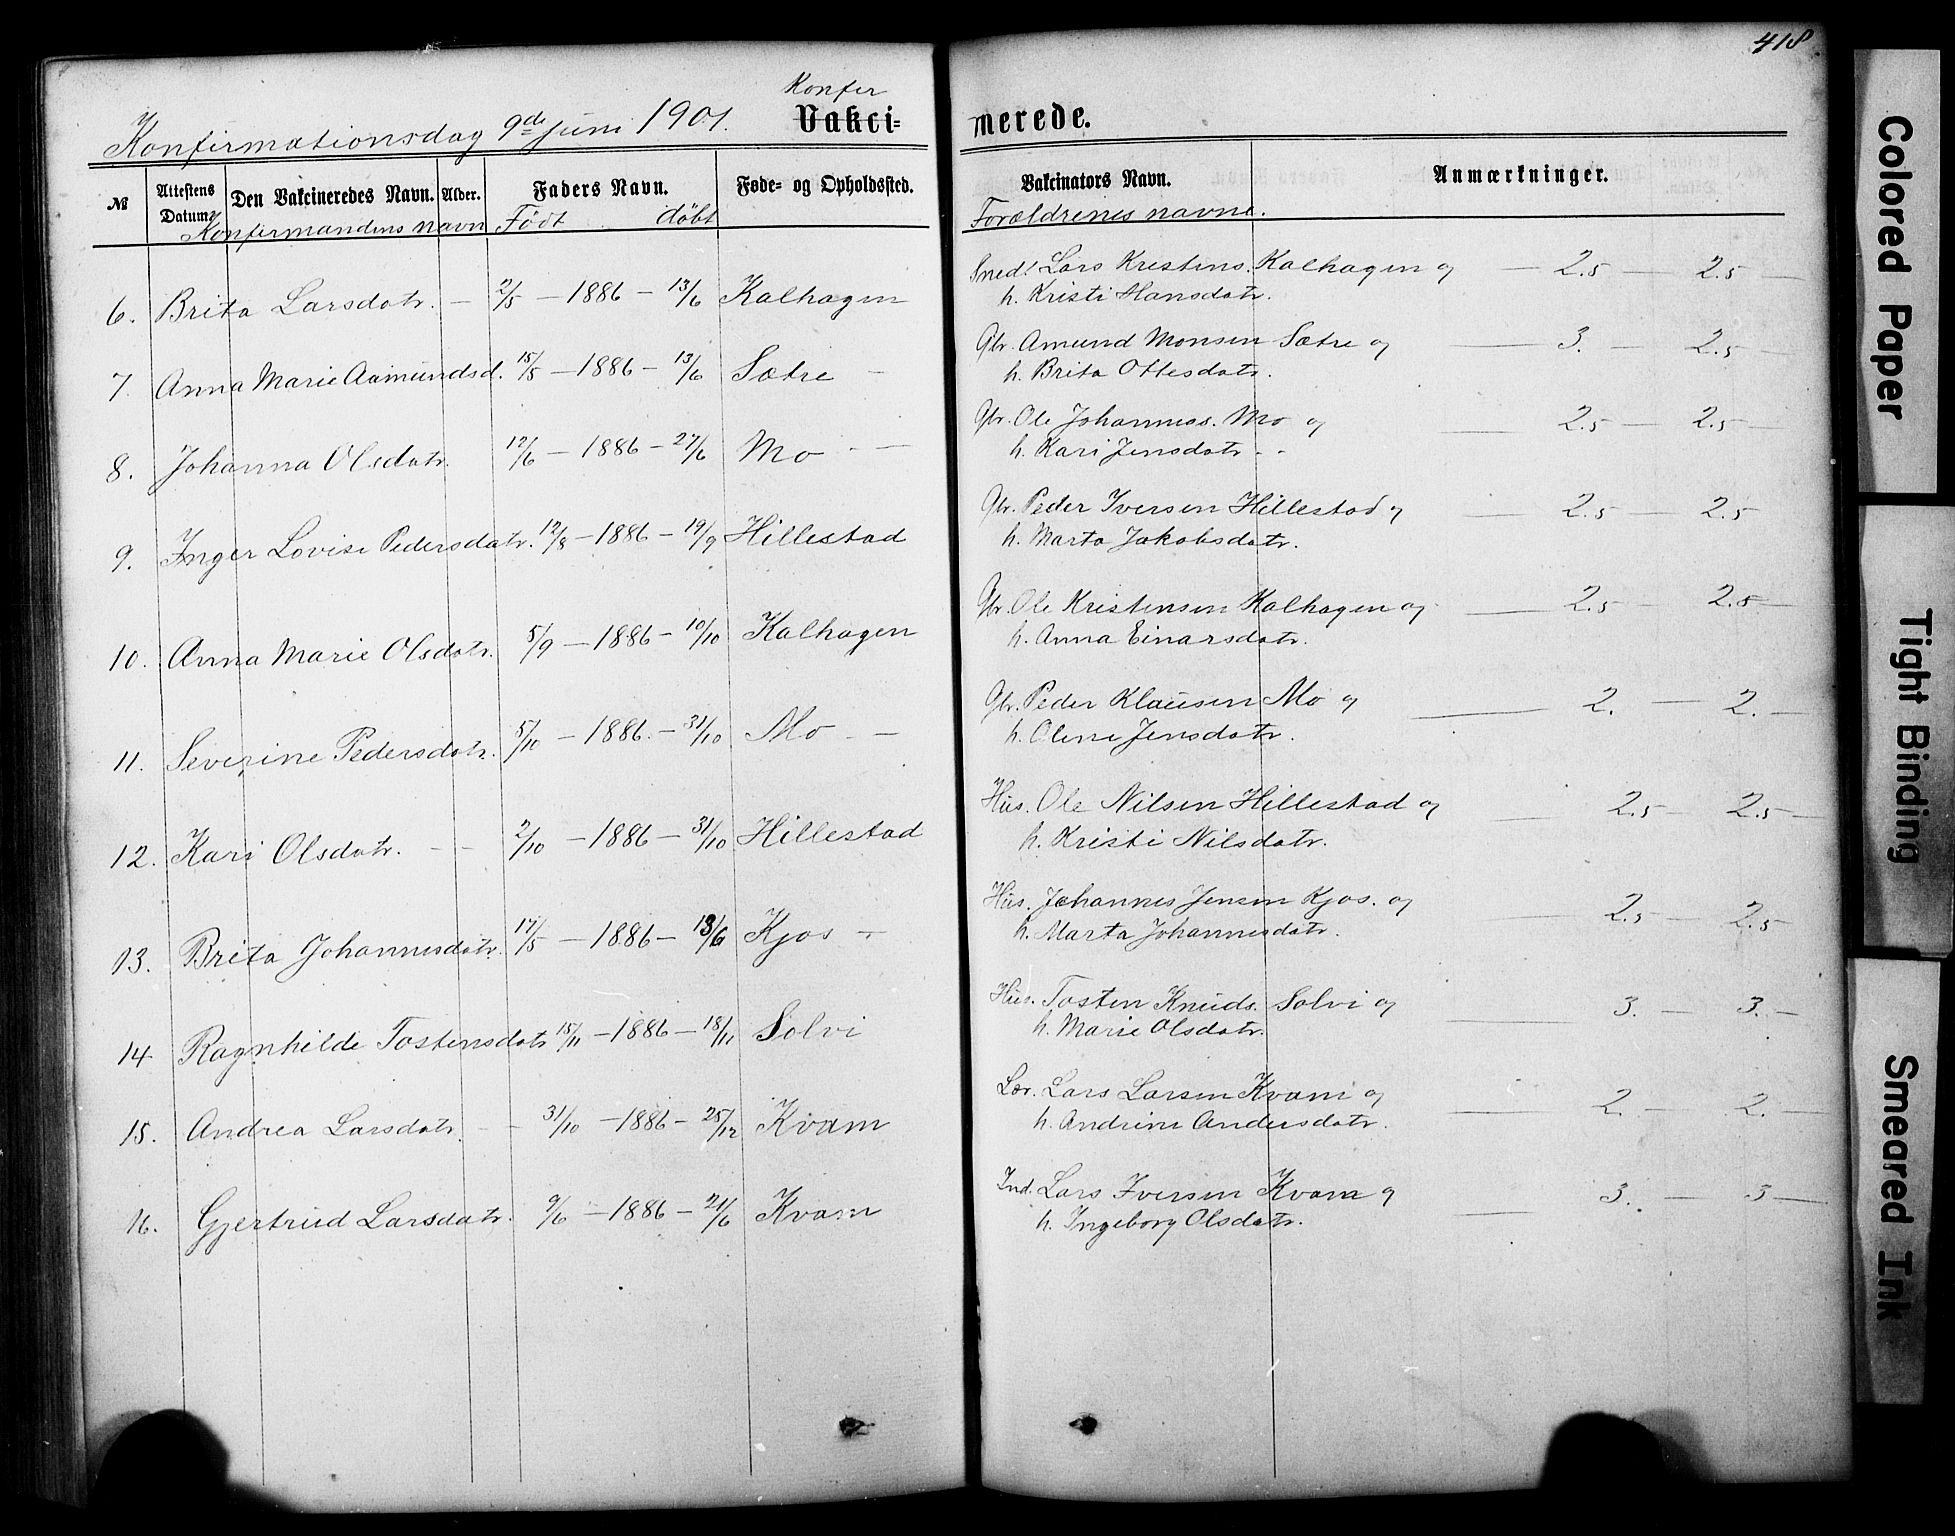 418
Konfirmationsdag 9de juni 1901.
Konfer
Vakci-
merede.
№
Attestens Datum.
Den Vakcineredes Navn.
Alder.
Faders Navn.
Føde- og Opholdssted.
Vakcinators Navn.
Anmærkninger.
Konfirmandens navn
Født
døbt
Forældrenes navne.
6. Brita Larsdatr. — 2/5 — 1886 — 13/6 Kalhagen
Smed! Lars Kristens. Kalhagen og — 2.5 — 2.5 —
h. Kristi Hansdatr.
7. Anna Marie Aamundsd. 15/5 — 1886 — 13/6 Sætre —
Gbr. Amund Monsen Sætre og — 3. — 2.5 —
h. Brita Ottesdatr.
8. Johanna Olsdatr. 12/6 — 1886 — 27/6 Mo — —
Gbr. Ole Johannes. Mo og — 2.5 — 2.5 —
h. Kari Jensdatr. - -
9. Inger Lovise Pedersdatr. 12/8 — 1886 — 19/9 Hillestad
Gbr. Peder Iversen Hillestad og — 2.5 — 2.5
h. Marta Jakobsdatr.
10. Anna Marie Olsdatr. 5/9 — 1886 — 10/10 Kalhagen
Gbr. Ole Kristensen Kalhagen og — 2.5 — 2.5 —
h. Anna Einarsdatr.
11. Severine Pedersdatr. 5/10 — 1886. — 31/10 Mo — —
Gbr. Peder Klausen Mo og — 2. — 2. —
h. Oline Jensdatr.
12. Kari Olsdatr. — — 2/10 — 1886 — 31/10 Hillestad
Hus. Ole Nilsen Hillestad og — 2.5 — 2.5 —
h. Kristi Nilsdatr.
13. Brita Johannesdatr. 17/5 — 1886 — 13/6 Kjos —
Hus. Johannes Jensen Kjos. og — 2.5 — 2.5
h. Marta Johannesdatr.
14 Ragnhilde Tostensdatr 15/11 — 1886 — 18/11 Solvi
Hus. Tosten Knuds. Solvi og — 3. — 3. —
h. Marie Olsdatr.
15. Andrea Larsdatr. — — 31/10 — 1886 — 25/12 Kvam
Lær. Lars Larsen Kvam og — 2. — 2. —
h. Andrine Andersdatr.
16. Gjertrud Larsdatr. 9/6 — 1886 — 21/6 Kvam
Ind. Lars Iversen Kvam og — 3. — 3 —
h. Ingeborg Olsdatr.
Colored Paper
Tight Binding
Smeared Ink